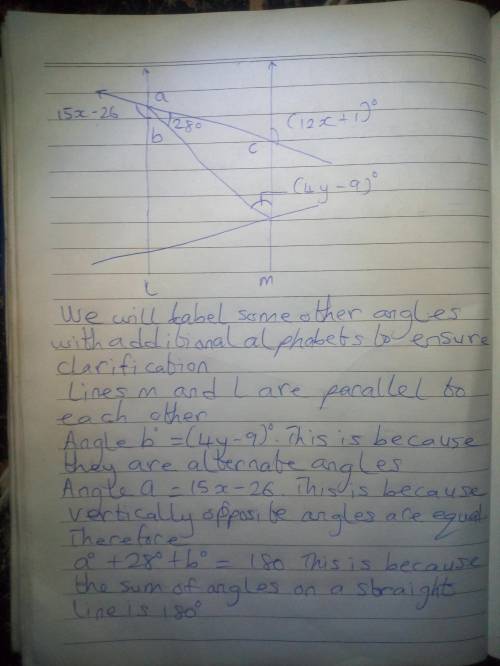 a
15x-26
28°
b
(12x+1)°
c
(4y-9)°
L
m
We will label some other angles
with additional alphabets to ensure
clarification
Lines m and L are parallel to
each other
Angle b° = (4y-9)°. This is because
they are alternate angles
Angle a = 15x-26. This is because
vertically opposite angles are equal
Therefore
a° + 28° + b° = 180 This is because
the sum of angles on a straight
line is 180°